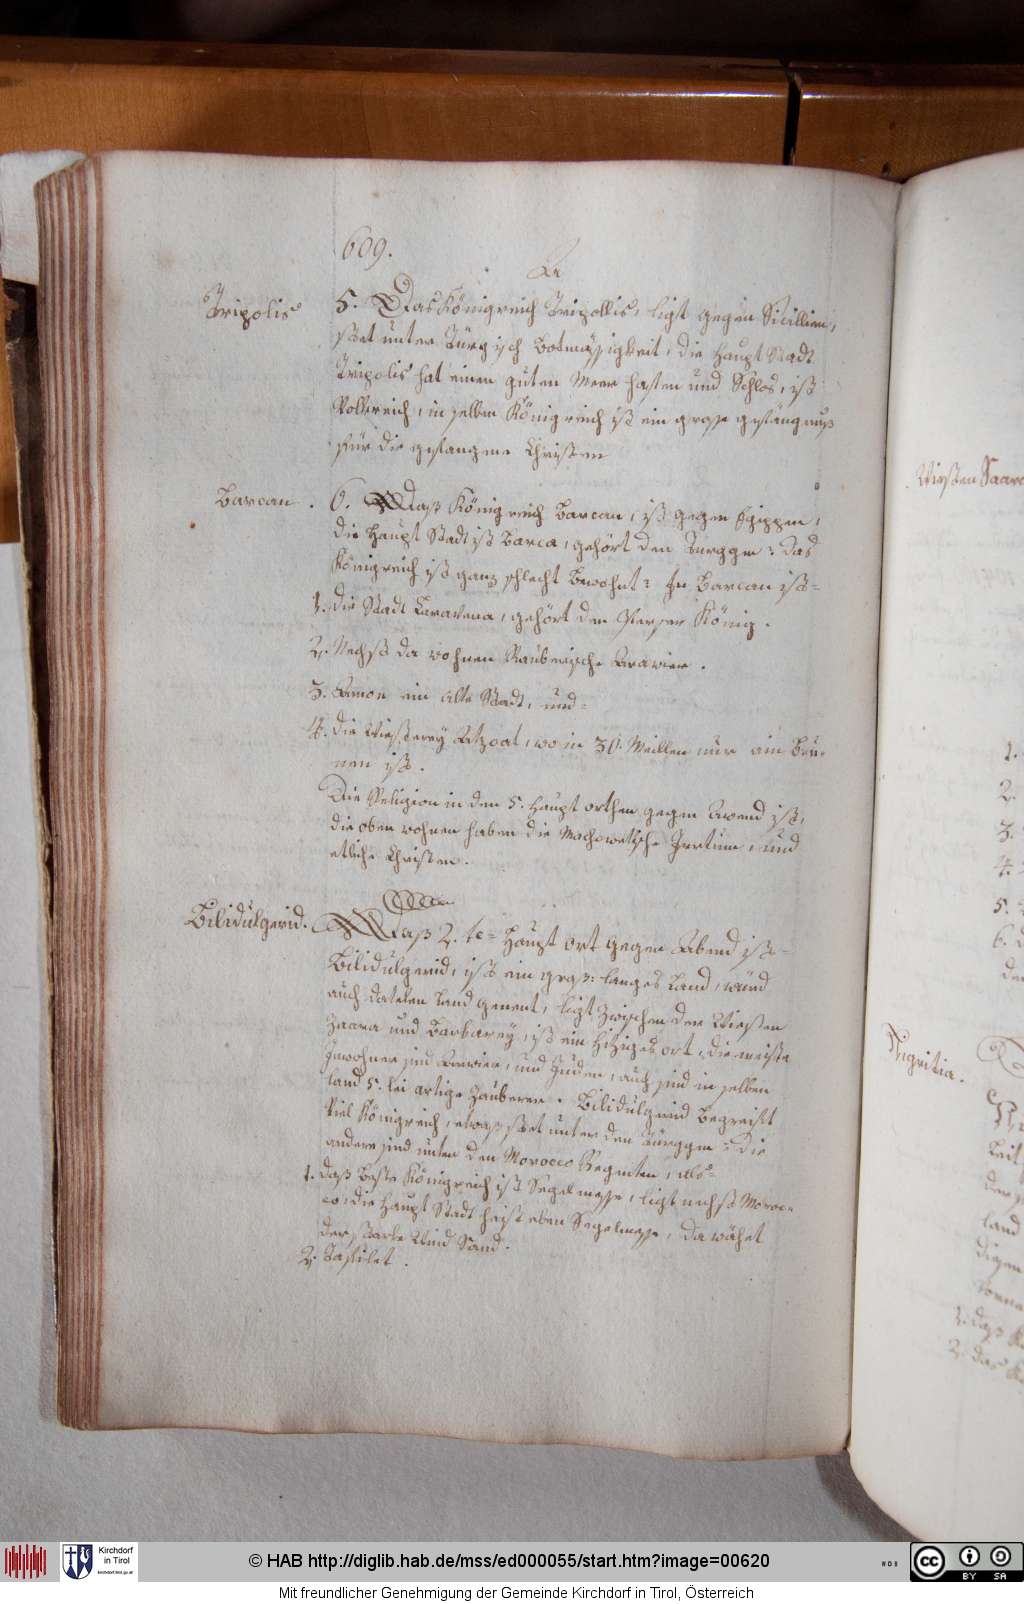 609.
Tripolis
5. Das Königreich Tripollis, ligt gegen Sicillien,
stet unter Türgisch Botmässigkeit, die Haupt Stadt
Tripolis hat einen guten Meer hafen und Schlos, ist
Volkreich, in selben Königreich ist ein grose gefängnuß
für die gefangene Christen
Barcan.
6. Daß Königreich Barcan, ist gegen Egippen,
die Haupt Stadt ist Barca, gehört den Turggen: das
Königreich ist ganz schlecht Bewohnt: In Barcan ist=
1. die Stadt Caravena, gehört den Perser König.
2. Nechst da wohnen Rauberische Arawier.
3. Amon ein alte Stadt, und=
4. die Wiesterey Azoat, wo in 30. Meillen nur ein Bru=
nen ist.
Die Religion in den 5. Haupt orthen gegen Awend ist,
die oben wohnen haben die Machowetische Irrtum, und
etliche Christen.
Bilidulgerid.
Daß 2.te= Haupt ort gegen Abend ist=
Bilidulgerid, ist ein groß: langes Land, würd
auch datelen Land genent, ligt zwischen der Wiesten
Zaara und Barbarey, ist ein Hiziges ort, die meiste
Inwohner sind Arawier, und Juden, auch sind in selben
land 5.lei artige Zauberer. Bilidulgerid Begreift
Viel Königreich, etwas stet unter den Türggen: die
andere sind unter den Morocco Regenten, als=
1. daß Beste Königreich ist Segelmesse, ligt nechst Moroc=
co, die Haupt Stadt heist eben Segelmesse, da wähet
der starke Wind Sand.
2. Tafilet.
Wiesten Saara
1.
2.
3.
4.
5.
6.
Nigritia.
land
1. daß
2. das
Kirchdorf
in Tirol
kirchdorf.tirol.gv.at
© HAB http://diglib.hab.de/mss/ed000055/start.htm?image=00620
WDB
CC BY SA
Mit freundlicher Genehmigung der Gemeinde Kirchdorf in Tirol, Österreich